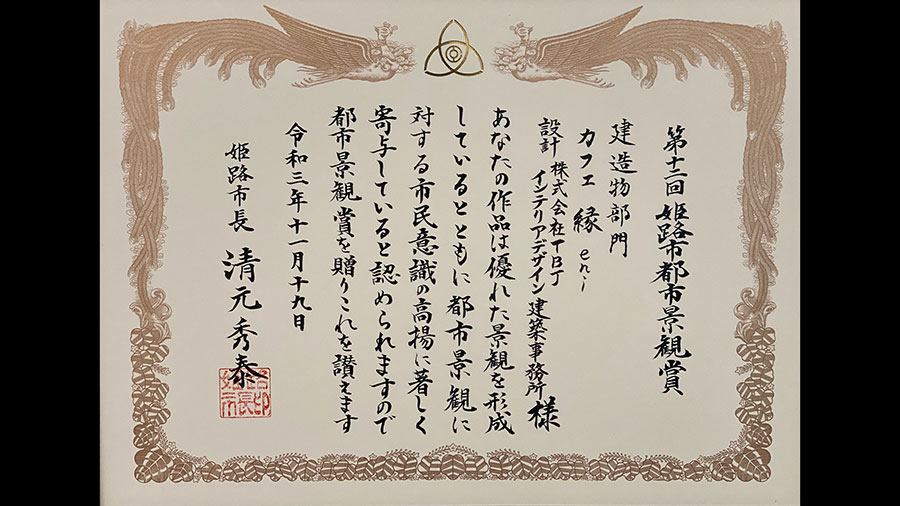 第十二回 姫路市都市景観賞
建造物部門
カフェ 縁 en.i
設計 株式会社TBJ
インテリアデザイン建築事務所 様
あなたの作品は優れた景観を形成
しているとともに都市景観に
対する市民意識の高揚に著しく
寄与していると認められますので
都市景観賞を贈りこれを讃えます
令和三年十一月十九日
姫路市長 清元秀泰